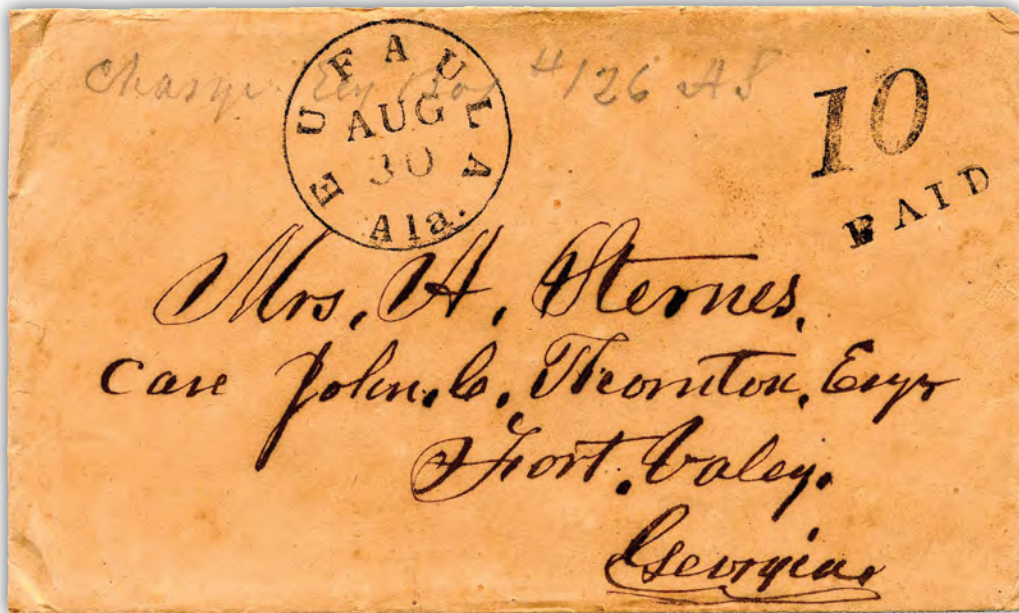 Charge Box #126 AS
EUFAULA
AUG
30
Ala.
10
PAID
Mrs. H. Sternes.
Care John. C. Thornton, Esqr
Fort. Valey.
Georgia.